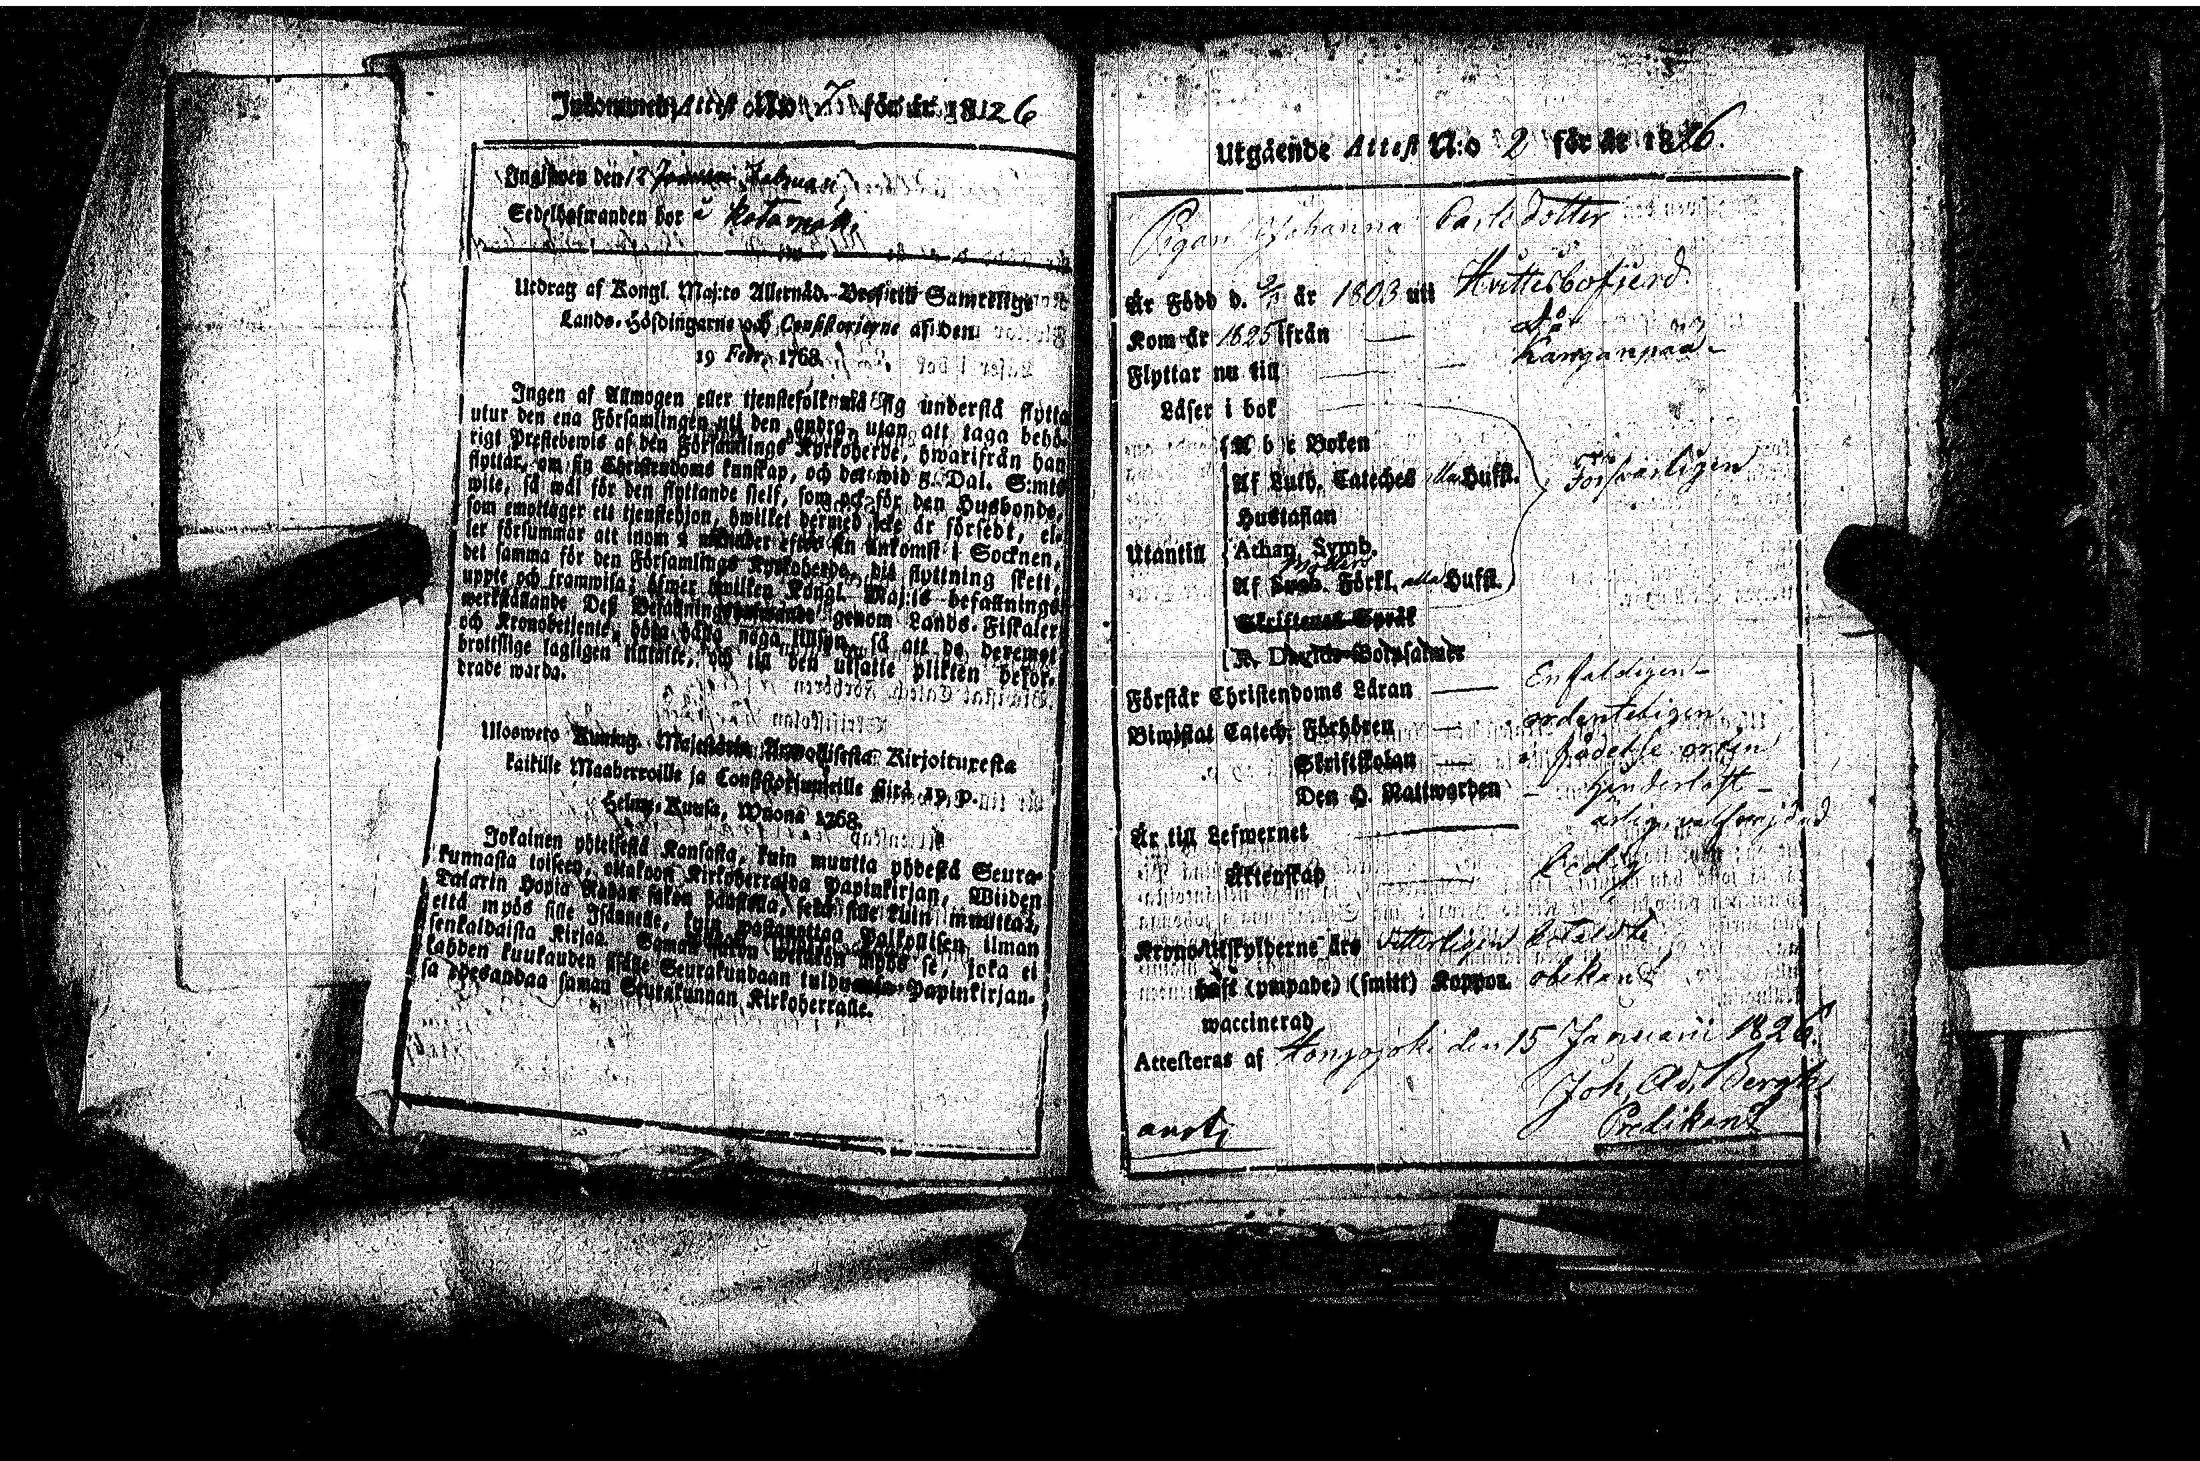 Inkommen Attest No 7 för år 1826
Ingifwen den 12 Januari Februari
Sedelhafwanden bor i Kotamäki
Utdrag af Kongl. Maj:ts Allernåd. Bref till Samtelige
Lands-Höfdingarne och Consistorierne af den
19 Febr. 1768.
Ingen af Allmogen eller tjenstefolk må sig understå flytta
utur den ena Församlingen uti den andra, utan att taga behö-
rigt Prestebewis af den Församlings Kyrkoherde, hwarifrån han
flyttar, om sin Christendoms kunskap, och det wid 5. Dal. S:mts
wite, så wäl för den flyttande sielf, som ock för den Husbonde,
som emottager ett tjenstehjon, hwilket dermed icke är försedt, el-
ler försummar att inom 2 månader efter sin ankomst i Socknen,
det samma för den Församlings Kyrkoherde, dit flyttning skett,
uppte och framwisa; öfwer hwilken Kongl. Maj:ts befallnings
werkställande Dess Befallningshafwande genom Lands-Fiskaler
och Kronobetjente, böra hafwa noga inseende, så att de deremot
brottslige lagligen tilltalte, och till den utsatte plikten befor-
drade warda.
Ulosweto Kuning. Majestätin Armollisesta Kirjoituxesta
kaikille Maaherroille ja Consistoriumeille siitä 19 p.
Helmi-Kuusa, Wuona 1768.
Jokainen yhteisestä Kansasta, kuin muutta yhdestä Seura-
kunnasta toiseen, ottakoon Kirkoherralda Papinkirjan, Wiiden
Talarin Hopia Rahan sakon haastolla, sekä sille kuin muuttaa,
että myös sille Isännälle, kuin wastanottaa Palkollisen ilman
senkaldaista Kirjaa. Saman sakon wetäkön myös se, joka ei
kahden kuukauden sisälle Seurakundaan tulduansa Papinkirjan-
sa ylesandaa saman Seurakunnan Kirkoherralle.
Utgående Attest N:o 2 för år 1826.
Pigan Johanna Carlsdotter
Är Född d. 2/3 år 1803 uti Hvittisbofjerd
Kom år 1825 ifrån — do
Flyttar nu till — Kanganpää
Läser i bok
A b c Boken
Af Luth. Cateches alla Hufst. Försvarligen
Hustaflan
Utantill Athan. Symb.
Af Sweb. Förkl. alla Hufst.
Skriftenes Språk
K. Davids Botpsalmer
Förstår Christendoms Läran — Enfaldigen
Biwistat Catech. Förhören — ordenteligen
Skriftskolan — i födelse orten
Den H. Nattwarden — hinderlöst
Är till Lefwernet — ärlig, välfrejdad
Äktenskap — Ledig
Krono-Utskylderne äro vitterligen betaldte
haft (ympade) (smitt) Koppor. obekant
waccinerad
Attesteras af Hongojoki den 15 Januarii 1826.
Joh. Ad. Bergh
Predikant